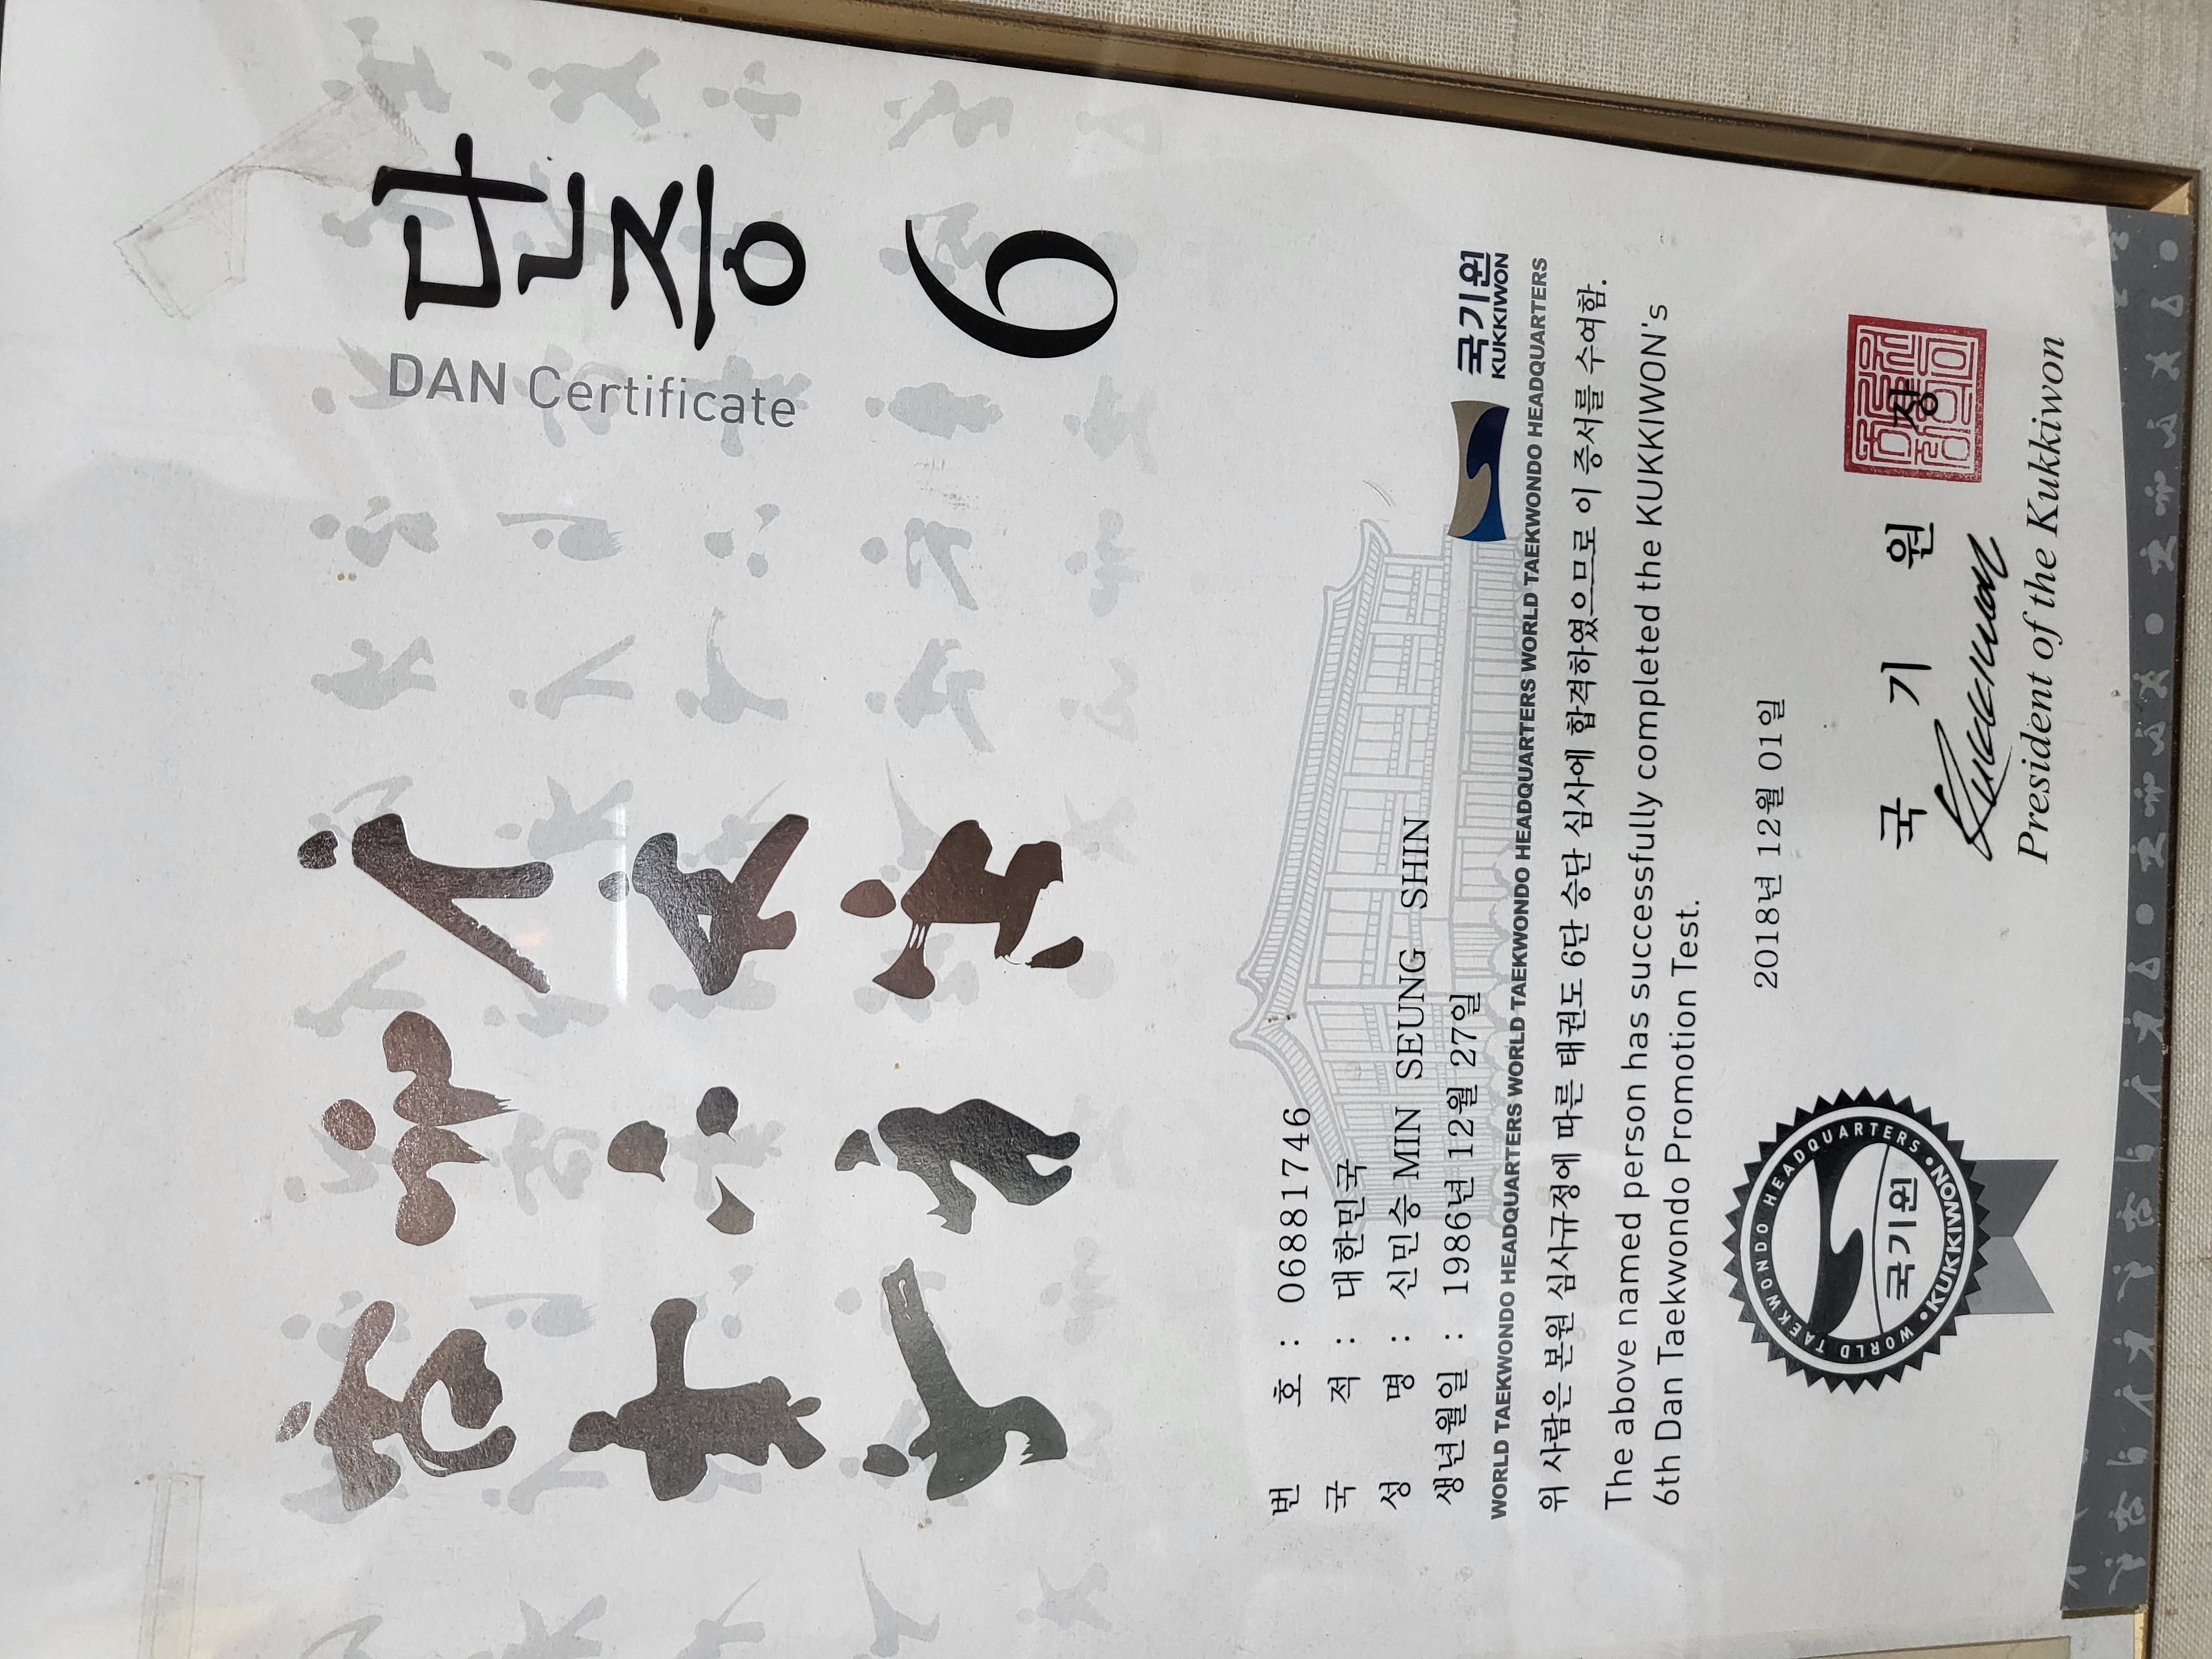 단증
DAN Certificate
6
번 호 : 06881746
국 적 : 대한민국
성 명 : 신민승 MIN SEUNG SHIN
생년월일 : 1986년 12월 27일
국기원
KUKKIWON
WORLD TAEKWONDO HEADQUARTERS WORLD TAEKWONDO HEADQUARTERS WORLD TAEKWONDO HEADQUARTERS WORLD TAEKWONDO HEADQUARTERS
위 사람은 본원 심사규정에 따른 태권도 6단 승단 심사에 합격하였으므로 이 증서를 수여함.
The above named person has successfully completed the KUKKIWON's
6th Dan Taekwondo Promotion Test.
2018년 12월 01일
WORLD TAEKWONDO HEADQUARTERS
국기원
KUKKIWON
국 기 원 장
Kukkiwon
President of the Kukkiwon